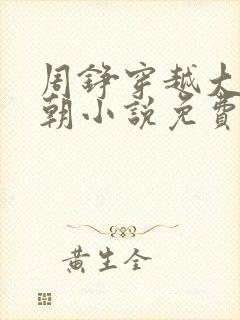 周錚穿越大
朝小説免費
黄生全